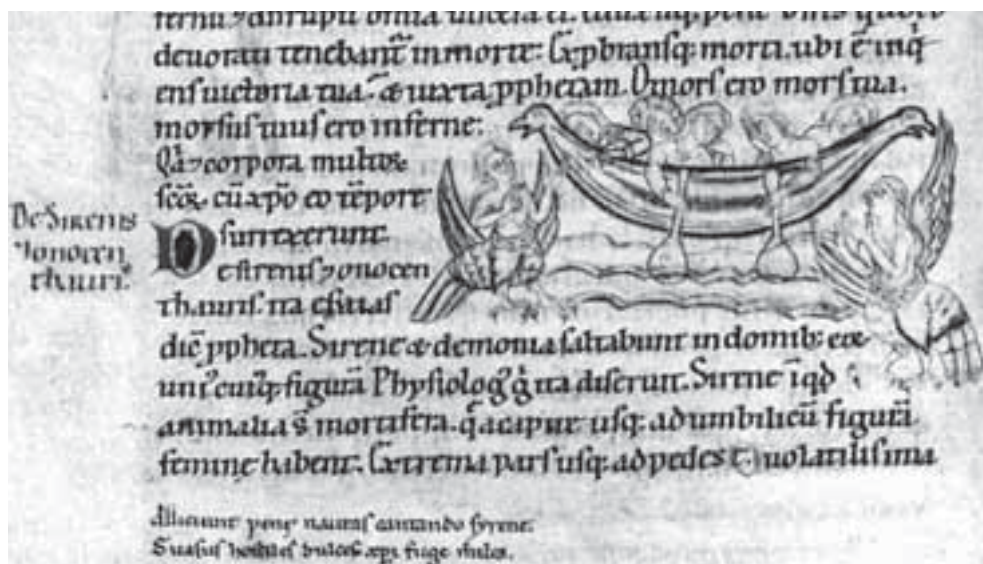 deuorati tenebant̄ in morte: Et p̄branſq; morti. ubi ē inq̇
enſ uictoria tua. & iuxta ꝓpphetam. O morſ ero morſ tua.
morſuſ tuuſ ero inferne:
corpora multoꝝ
ſcōꝝ cū xp̄o eo tēpore
ſurrexerunt
De Sirenis
⁊ onocen
thauriſ
De ſireniſ ⁊ onocen
thauriſ. ita eſaiaſ
dic̄ ꝓpheta. Sirene & demonia ſaltabunt in domib; eoꝝ
uni᷒ cuiq; figurā Phyſiolog᷒ ita diſeruit. Sirene īqd
animalia s̄ mortifera. q̄ a capite uſq; ad umbilicū figurā
feminę habent. Extrema parſ uſq; ad pedeſ uolatiliſ ima
Alliciunt nautaſ cantando ſyrene:
dulceſ fuge mileſ.